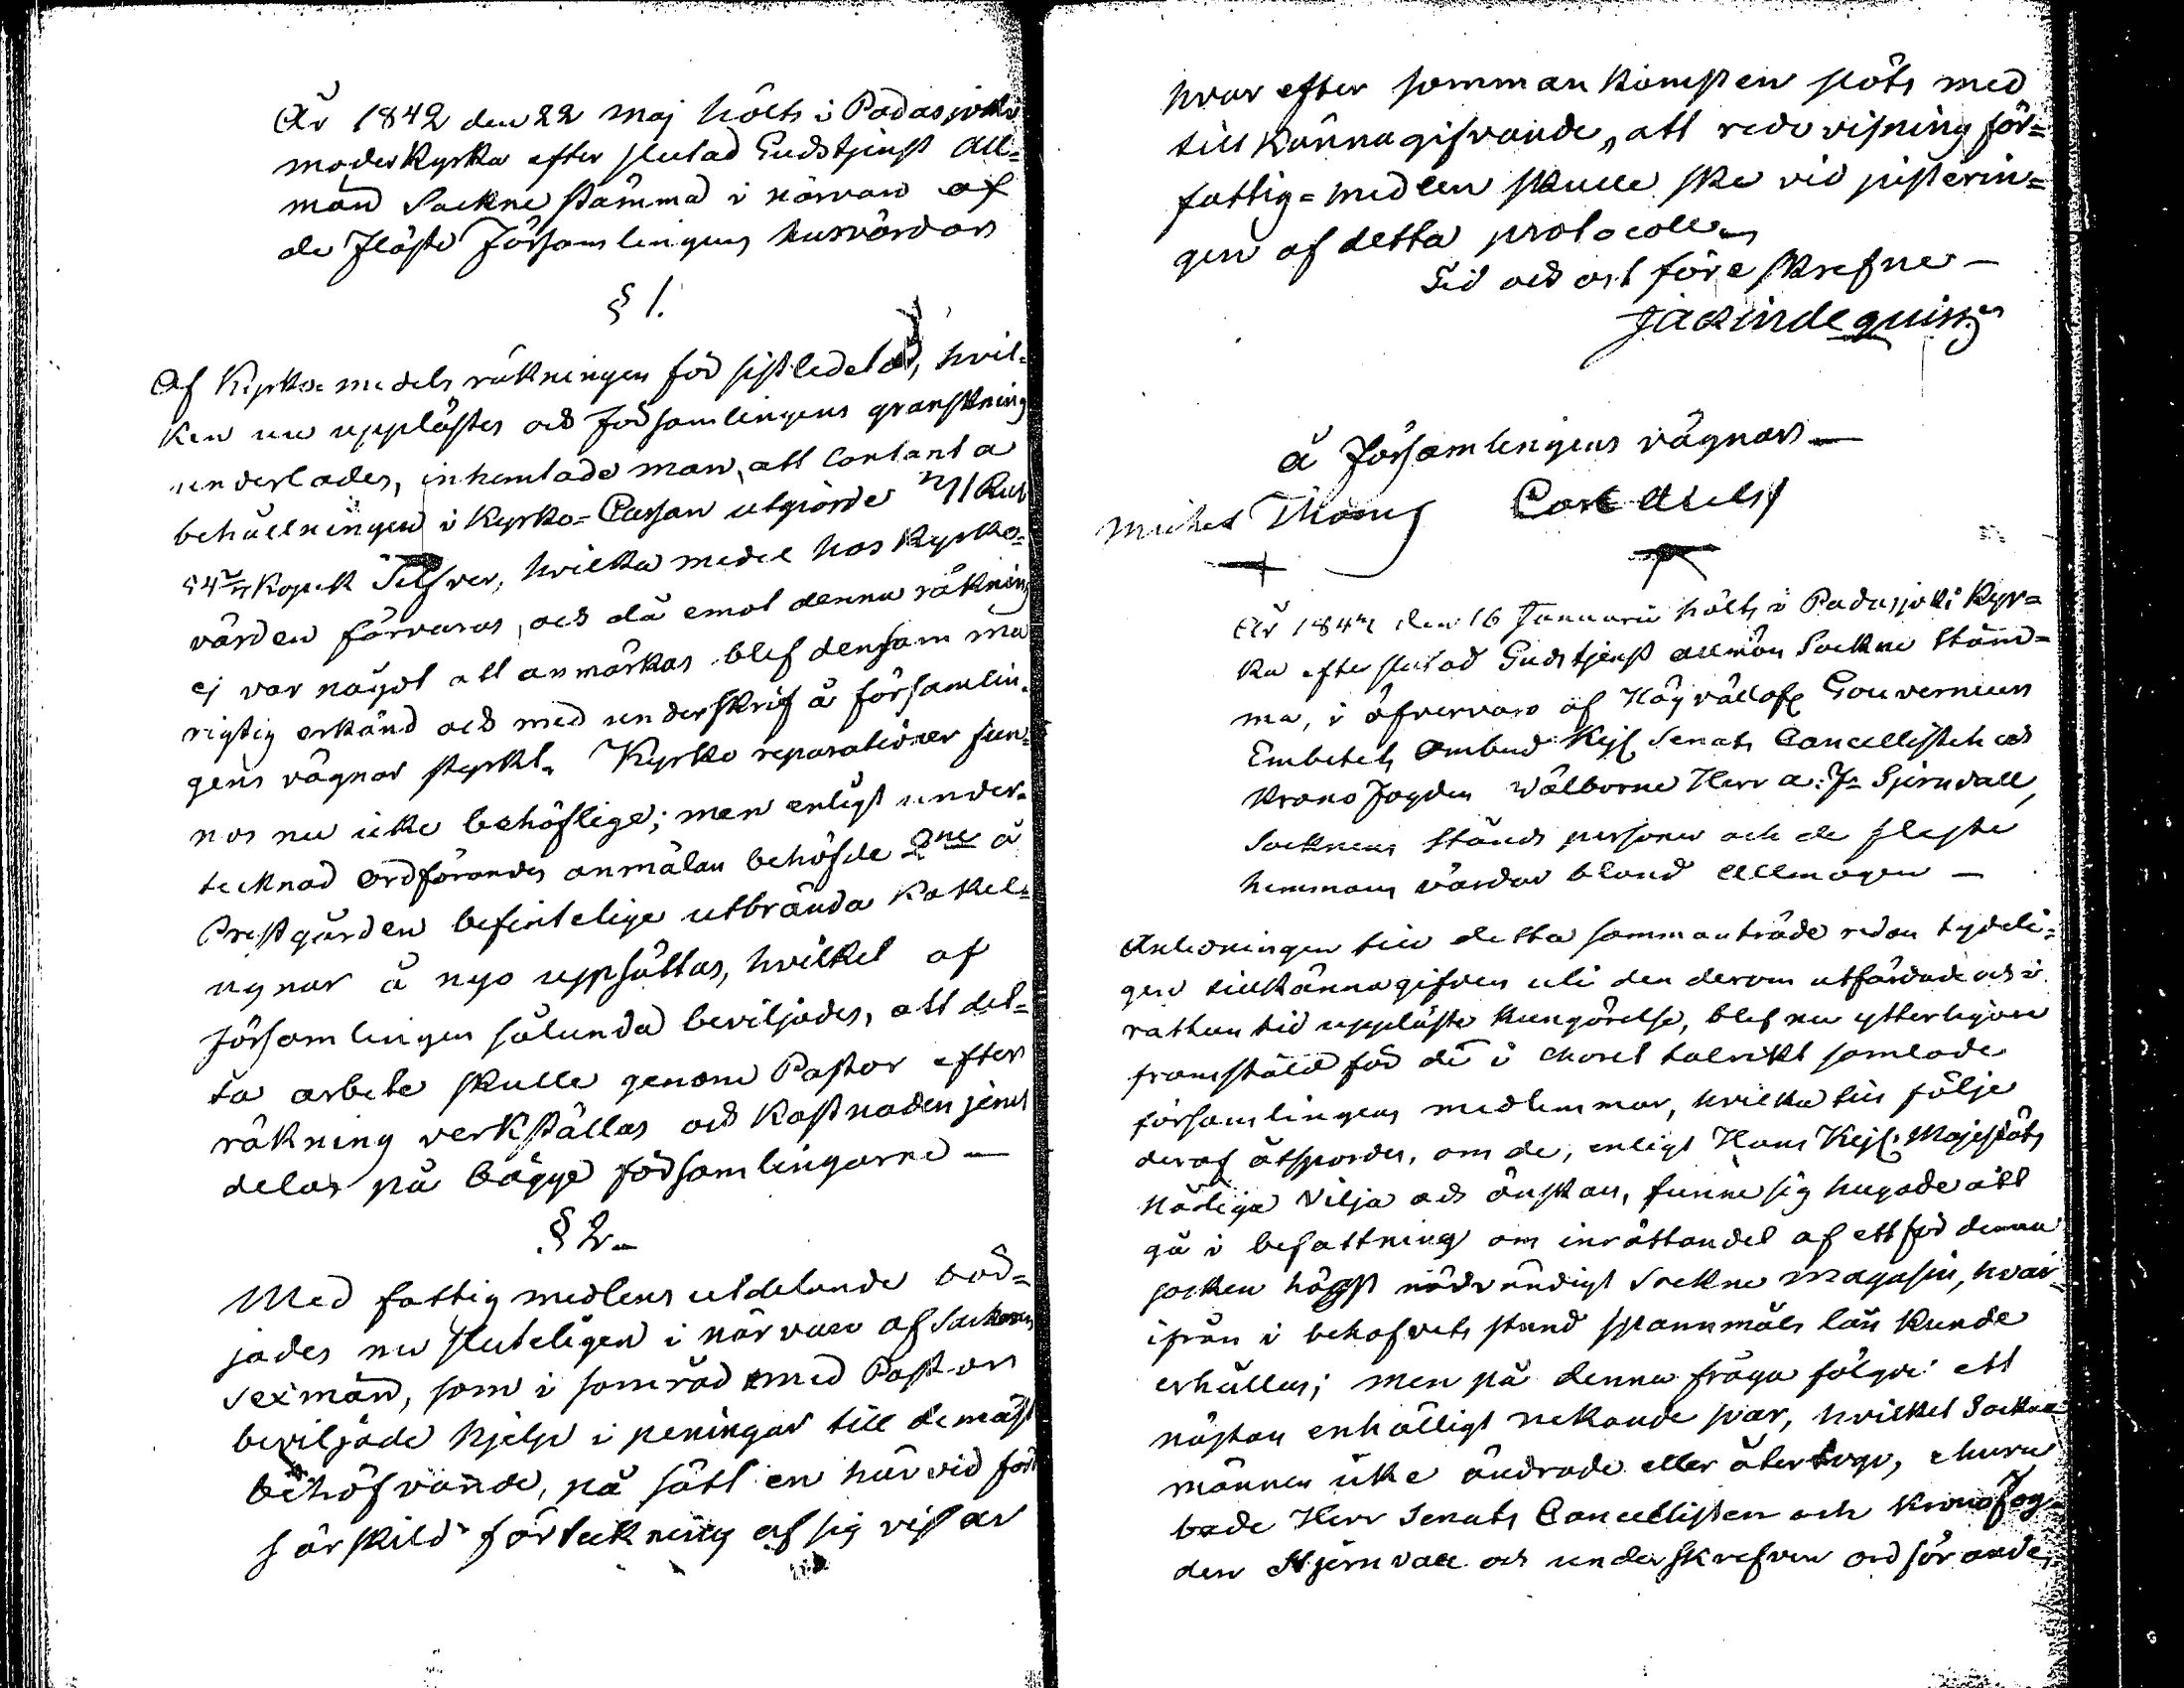 År 1842 den 22 Maj hölts i Padasjoki
moderkyrka efter slutad Gudstjenst All=
män Sockne stämma i närvaro af
de flæste Församlingens husvärdar
§ 1.
Af Kyrko medels räkningen för sistledet år, hvil=
ken nu upplästes och Församlingens granskning
underlades, inhemtade man, att Contanta
behållningen i Kyrko=Cassan utgiorde Rub
Kopek Silfver, hvilka medel hos Kyrko=
värden förvaras, och då emot denna räkning
ej var något att anmärkas blef densamma
rigtig erkänd och med underskrift å församlin=
gens vägnar styrkt. Kyrko reparationer fun=
nos nu icke behöflige; men enligt under=
tecknad Ordförandes anmälan behöfde 2ne å
Prestgården befintelige utbrända kakel=
ugnar å nyo uppsättas, hvilket af
Församlingen sålunda beviljades, att det=
ta arbete skulle genom Pastor efter
räkning verkställas och kostnaden jemt
delas på bägge församlingarne —
§ 2.
Med fattig medlens utdelande bör=
jades nu sluteligen i närvaro af Socknens
Sexmän, som i samråd med Pastor
beviljade hjelp i peningar till de mäst
behöfvande, på sätt en här vid fo
särskild förteckning af sig visar
hvar efter sammankomsten slöts med
tillkännagifvande, att redovisning för=
fattig=medlen skulle ske vid justerin=
gen af detta protocoll.
Tid och ort föreskrefne —
å Församlingens vägnar —
Michel Thomas Carl
År 184 den 16 Januarii hölts i Padasjoki Kyr=
ka efter slutad Gudstjenst allmän Sockne Stäm=
ma, i öfvervaro af Högvällofl Gouverneurs
Embetets Ombud Kejs Senats Cancellisten och
Krono Fogden Välborne Herr A: F: Stjernvall,
Socknens Stånds personer och de flæste
hemmans värdar bland Allmogen —
Anledningen till detta sammanträde redan tydeli=
gen tillkännagifven uti den derom utfärdade och i
rattan tid uppläste kungörelse, blef nu ytterligare
framställd för de i choret talrikt samlade
församlingens medlemmar, hvilka till följe
deraf åtspordes, om de, enligt Hans Kejs. Majestäts
Nådiga vilja och önskan, funne sig hugade att
gå i befattning om inrättandet af ett för denna
socken högst nödvändigt Sockne Magasin, hvar=
ifrån i behofvets stund spannmåls lån kunde
erhållas; men på denna fråga följde ett
nästan enhälligt nekande svar, hvilket Sockne
männen icke ändrade eller återtogo, ehuru
både Herr Senats Cancellisten och Kronofog=
den Stjernvall och underskrefven ordförande,